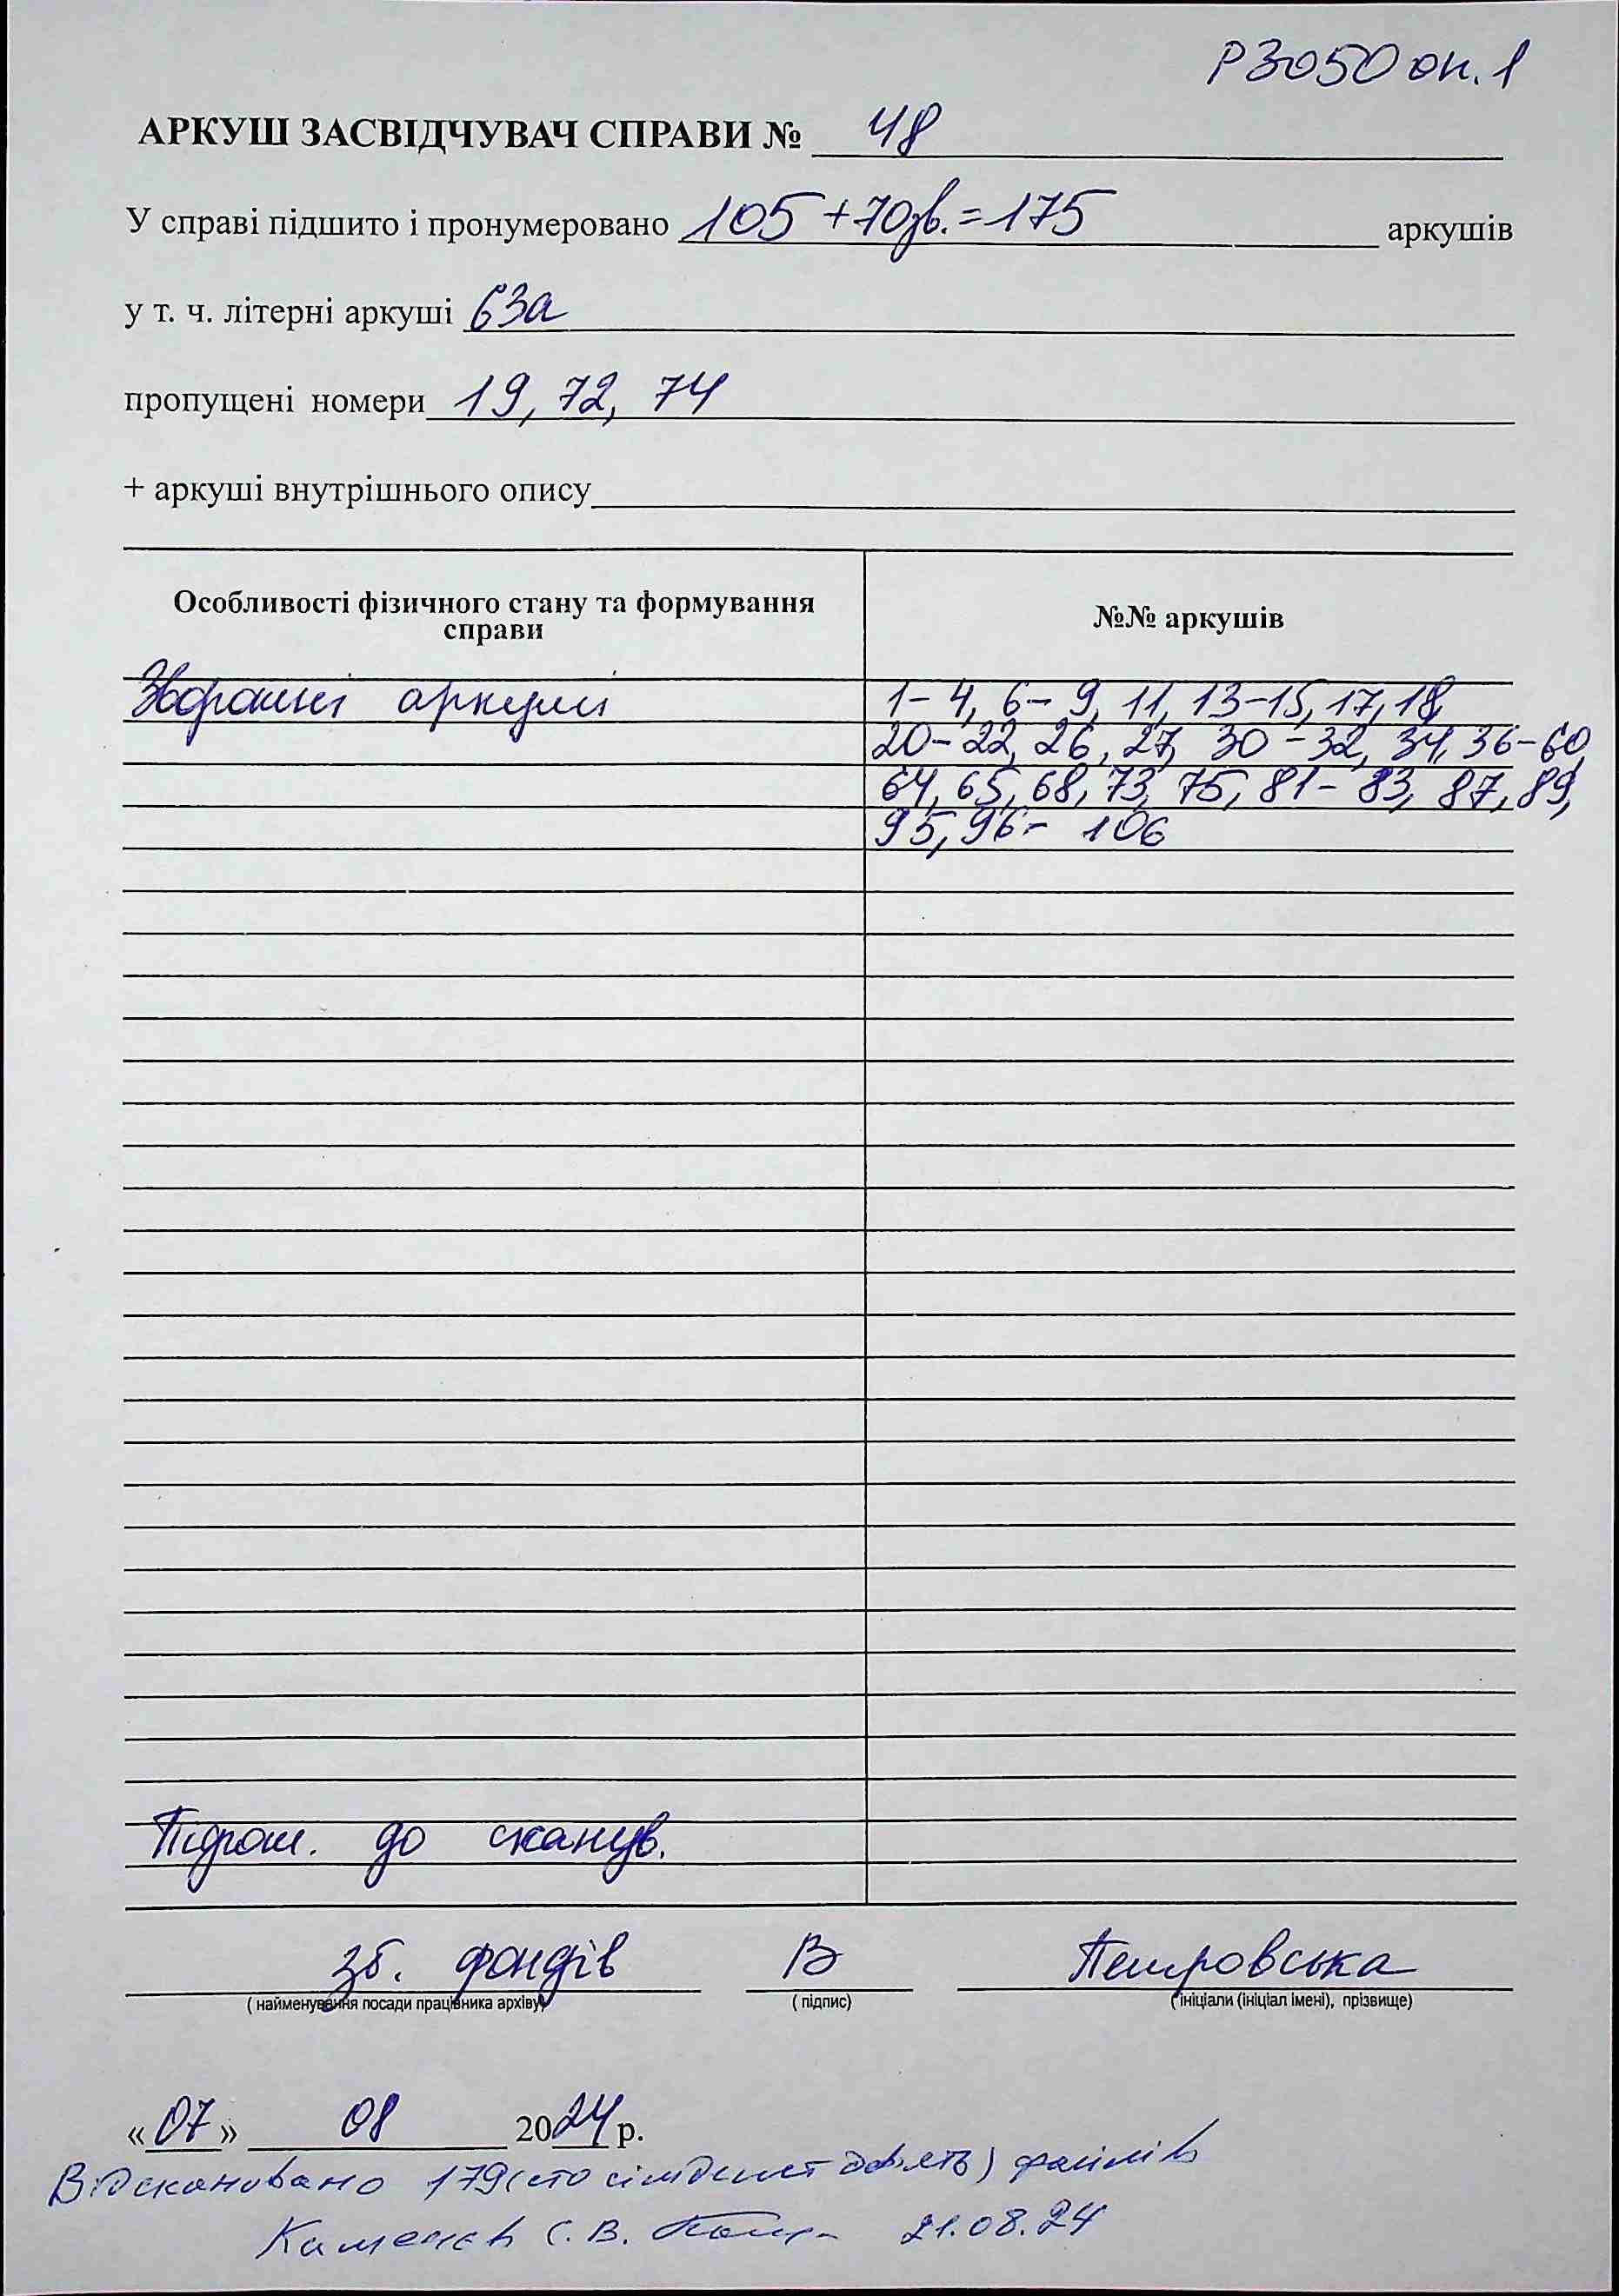 Р3050 оп.1
АРКУШ ЗАСВІДЧУВАЧ СПРАВИ № 48
У справі підшито і пронумеровано 105+70зв.=175 аркушів
у т. ч. літерні аркуші 63а
пропущені номери 19, 72, 74
+ аркуші внутрішнього опису
Особливості фізичного стану та формування справи
№№ аркушів
Зворотні аркуші
1-4, 6-9, 11, 13-15, 17, 18,
20-22, 26, 27, 30-32, 34, 36-60,
64, 65, 68, 73, 75, 81-83, 87, 89,
95, 96- 106
Підрах. до сканув.
зб. фондів В Петровська
( найменування посади працівника архіву) ( підпис) ( ініціали (ініціал імені), прізвище)
«07» 08 2024 р.
Відскановано 179 (сто сімдесят дев'ять) файлів
С. В. 21.08.24